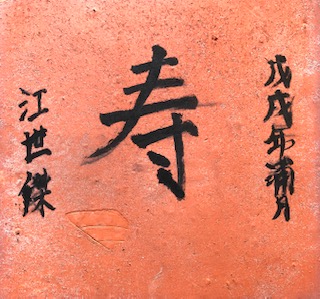 戊戌年蒲月
寿
江世傑